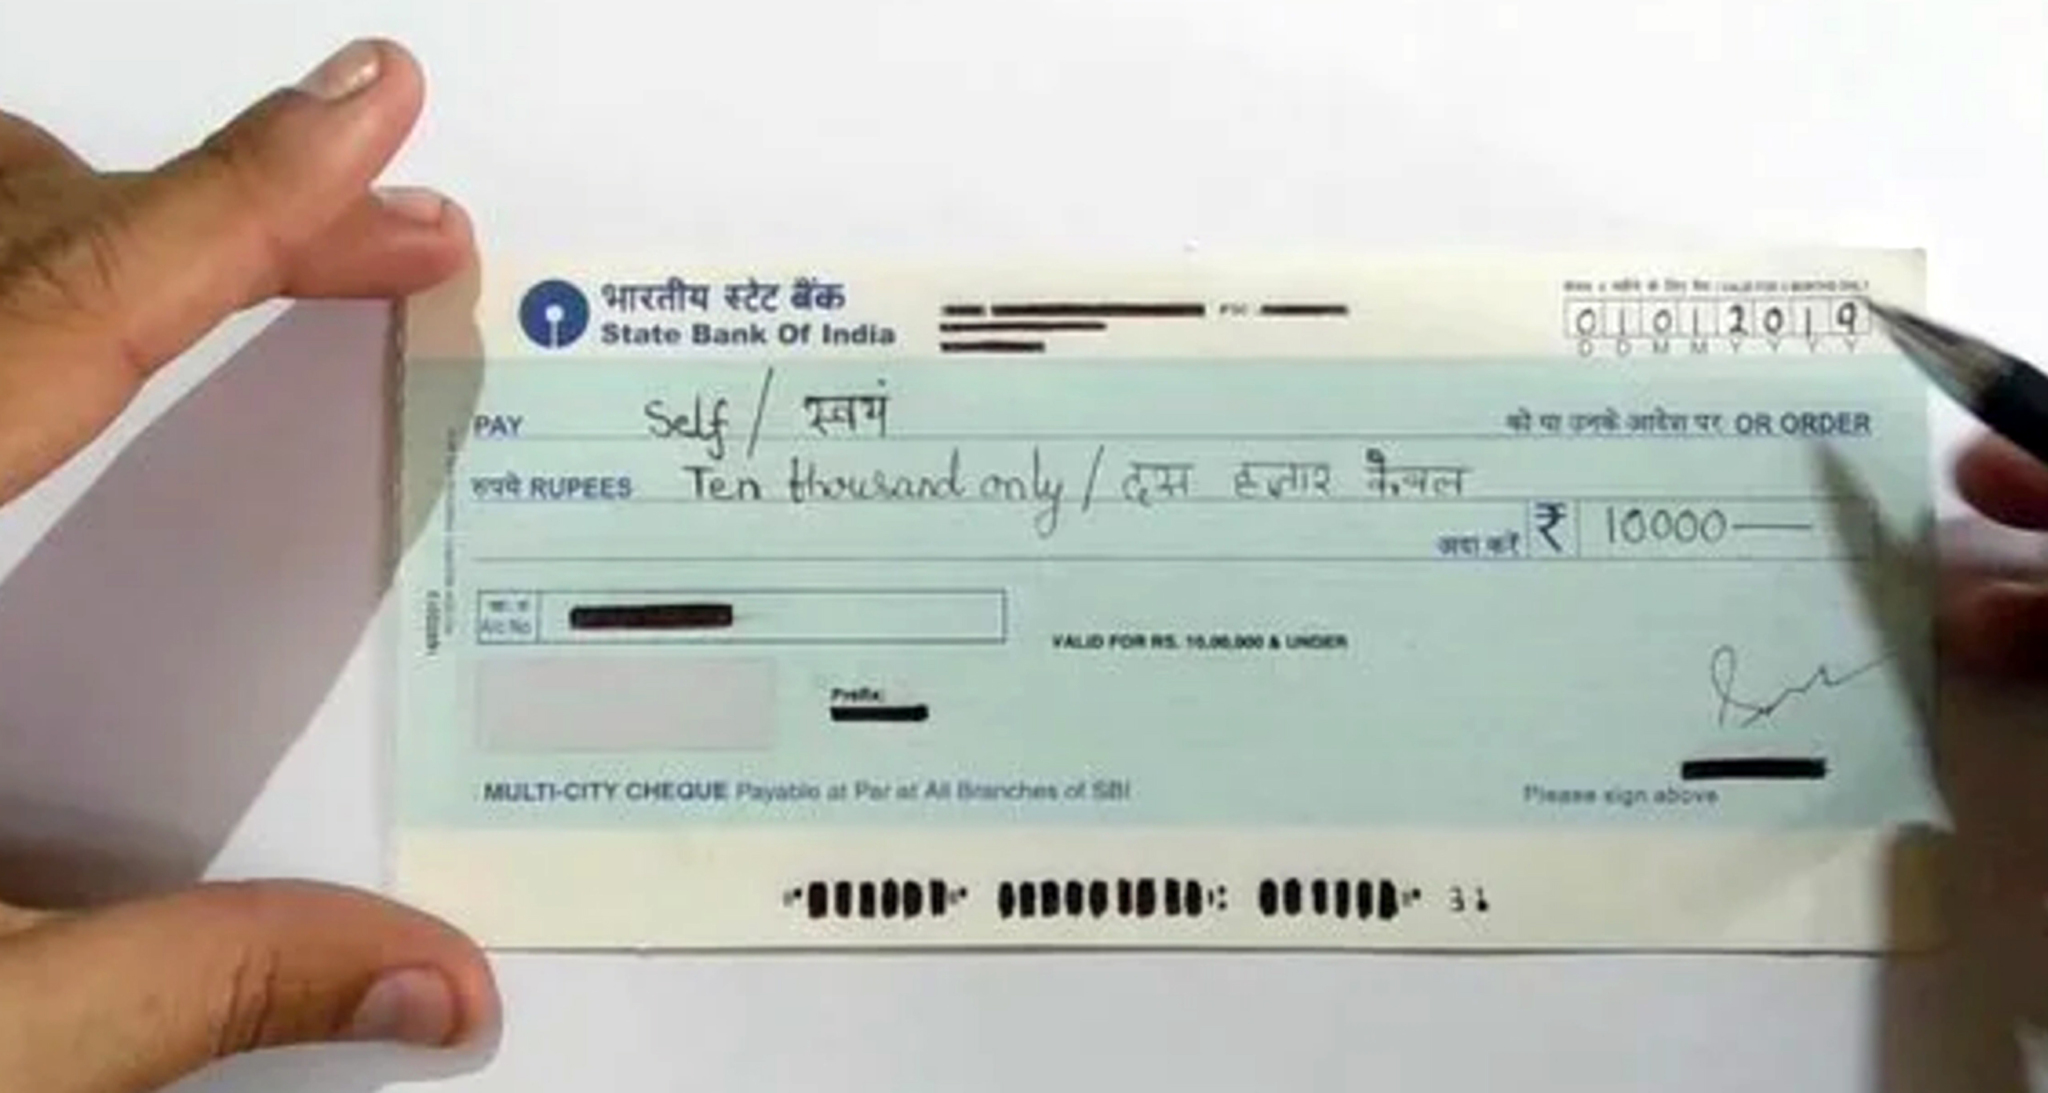 भारतीय स्टेट बैंक
State Bank Of India
VALID FOR 3 MONTHS ONLY
0 1 0 1 2 0 1 9
D D M M Y Y Y Y
PAY Self / स्वयं को या उनके आदेश पर OR ORDER
रुपये RUPEES Ten thousand only / दस हजार केवल
अदा करें ₹ 10000
A/c No
VALID FOR RS. 10,00,000 & UNDER
Prefix:
MULTI-CITY CHEQUE Payable at Par at All Branches of SBI
Please sign above
31